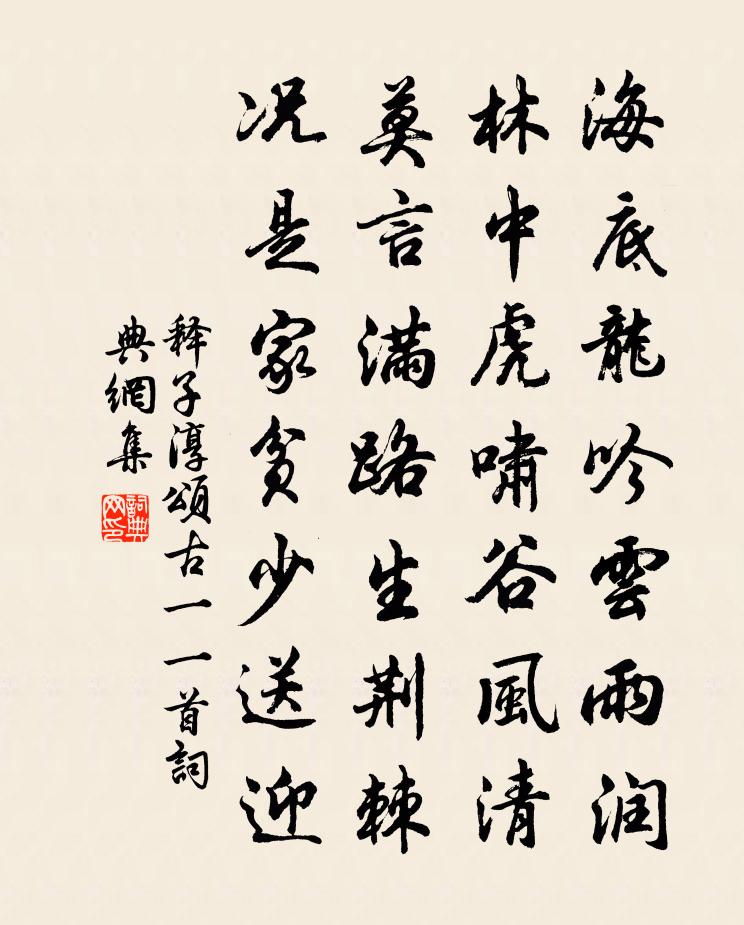 海底龍吟雲雨润
林中虎嘯谷風清
莫言满路生荆棘
况是家貧少送迎
释子淳頌古一一首詞
典網集
詞典网印